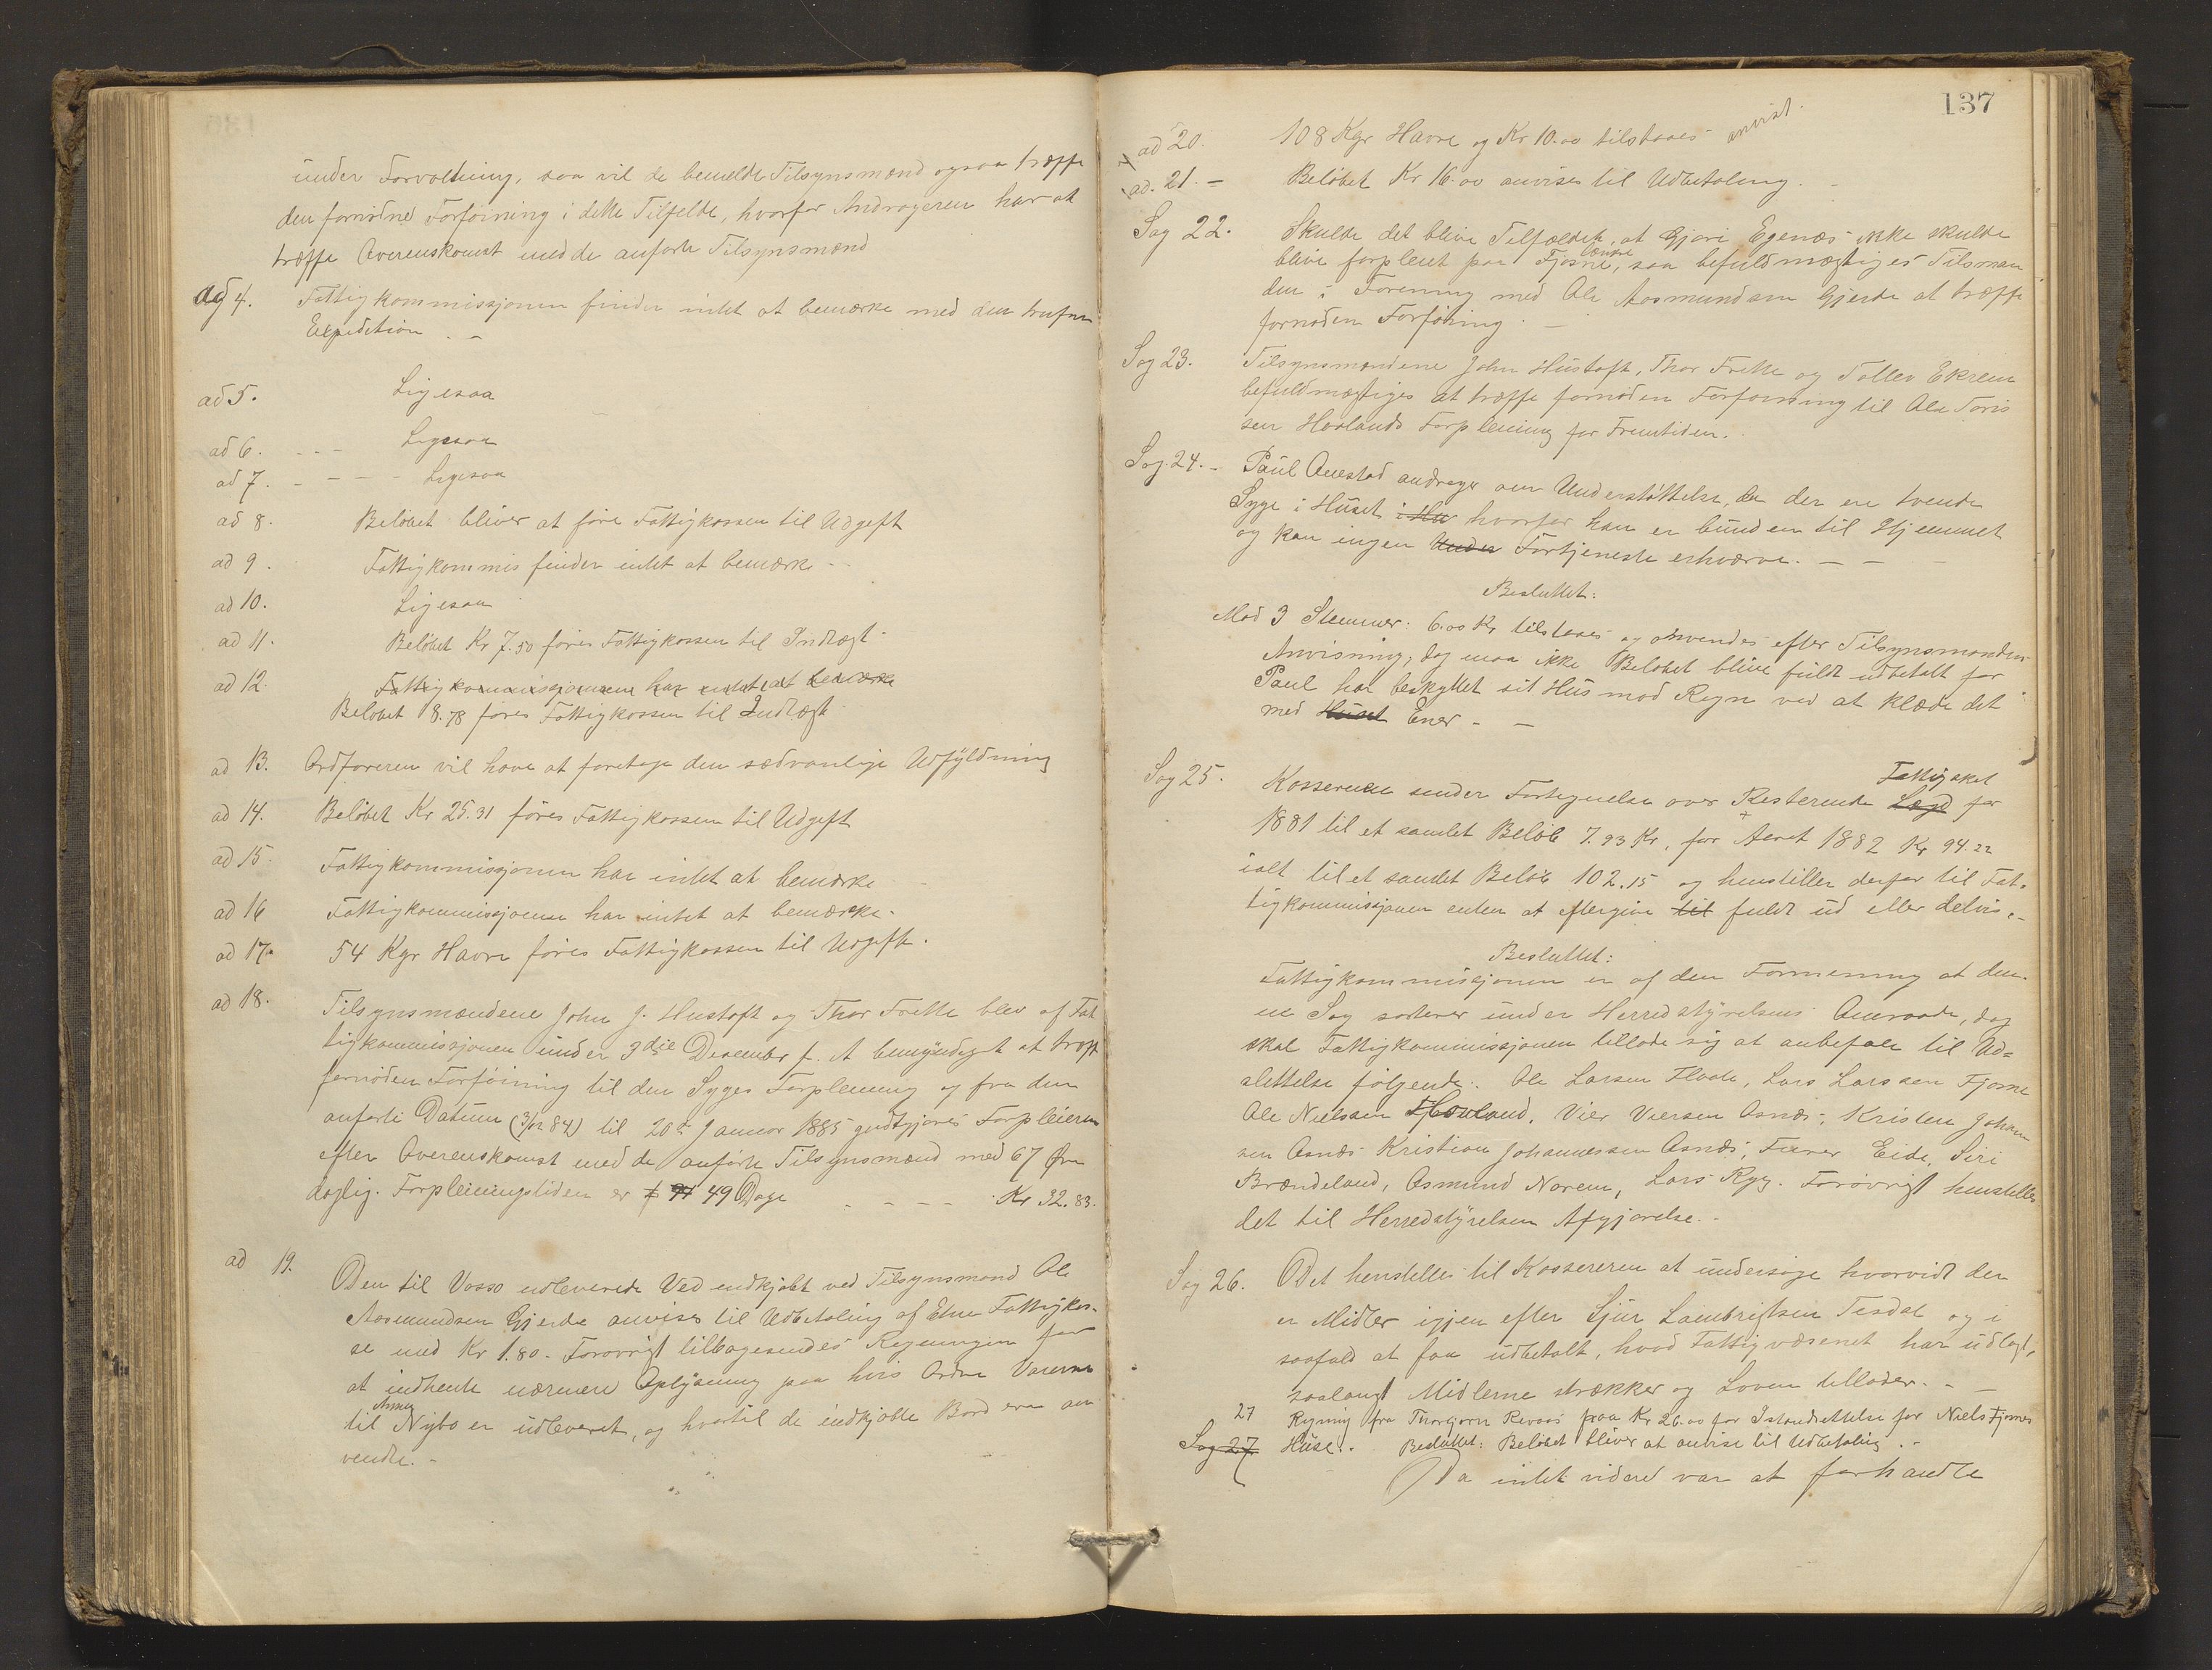 under Forvaltning, saa vil de bemeldte Tilsynsmænd ogsaa træffe
den fornødne Forføining i dette Tilfelde, hvorfor Andrageren har at
træffe Overenskomst med de anførte Tilsynsmænd
ad 4. Fattigkommissjonen finder intet at bemærke med den trufne
Expedition
ad 5. Ligesaa
ad 6. Ligesaa
ad 7. Ligesaa
ad 8. Beløbet bliver at føre Fattigkassen til Udgift
ad 9. Fattigkommis finder intet at bemærke
ad 10. Ligesaa
ad 11. Beløbet Kr 7.50 føres Fattigkassen til Indtægt
ad 12. Fattigkommissjonen har intet at bemærke
Beløbet 8.78 føres Fattigkassen til Indtægt
ad 13. Ordføreren vil have at foretage den sædvanlige Udfyldning
ad 14. Beløbet Kr 25.31 føres Fattigkassen til Udgift
ad 15. Fattigkommissjonen har intet at bemærke
ad 16 Fattigkommissjonen har intet at bemærke.
ad 17. 54 Kgr Havre føres Fattigkassen til Udgift.
ad 18. Tilsynsmændene John J. Hustoft og Thor Frette blev af Fat
tigkommissjonen under 3die December f. A bemyndiget at træffe
fornøden Forføining til den Syges Forpleining og fra den
anførte Datum (3/12 84) til 20de Januar 1885 godtgjøres Forpleieren
efter Overenskomst med de anførte Tilsynsmænd med 67 Øre
daglig. Forpleiningstiden er 49 Dage - - - - Kr 32.83.
ad 19. Den til Vosso udleverede Ved indkjøbt ved Tilsynsmand Ole
Aasmundsen Gjerde anvises til Udbetaling af Etne Fattigkas-
se med Kr 1.80. Forøvrigt tilbagesendes Regningen for
at indhente nærmere Oplysning paa hvis Ordre Varerne
Anna
til Nybø er udleveret, og hvortil de indkjøbte Bord ere an
vendte. -
137
ad 20. 108 Kgr Havre og Kr 10.00 tilstaaes anvist.
ad. 21. - Beløbet Kr 16.00 anvises til Udbetaling.
Sag 22. Skulde det blive Tilfældet, at Gjøri Egenæs ikke skulde
længre
blive forpleiet paa Fjøsne, saa befuldmægtiges Tilsman
den i Forening med Ole Aasmundsen Gjerde at træffe
fornøden Forføining.
Sag 23. Tilsynsmændene John Hustoft, Thor Frette og Tollev Ekrem
befuldmægtiges at træffe fornøden Forføining til Ole Toris
sen Haalands Forpleining for Fremtiden.
Sag. 24. - Paul Questad andrager om Understøttelse, da der ere tvende
Syge i Huset i Hu hvorfor han er bunden til Hjemmet
og kan ingen Under Fortjeneste erhværve.
Besluttet:
Mod 3 Stemmer: 6.00 Kr tilstaaes og anvendes efter Tilsynsmanden
Anvisning, dog maa ikke Beløbet blive fuldt udbetalt før
Paul har beskyttet sit Hus mod Regn ved at klæde det
med Huset Ener. -
Sag 25. Kassereren sender Fortegnelse over Resterende Lægd for
Fattigskat
1881 til et samlet Beløb 7.93 Kr, for Aaret 1882 Kr 94.22
ialt til et samlet Beløb 102.15 og henstiller derfor til Fat-
tigkommissjonen enten at eftergive til fuldt ud eller delvis. -
Besluttet:
Fattigkommissjonen er af den Formening at den-
ne Sag sorterer under Herredstyrelsens Omraade, dog
skal Fattigkommissjonen tillade sig at anbefale til Ud-
slettelse følgende: Ole Larsen Flaate, Lars Larssen Fjøsne
Ole Nielsen Haaland, Vier Viersen Osnæs, Kristen Johan
sen Osnæs Kristian Johannessen Osnæs, Eide, Siri
Brændeland, Osmund Norem, Lars Ryg. Forøvrigt henstilles
det til Herredstyrelsen Afgjørelse. -
Sag 26. Det henstilles til Kassereren at undersøge hvorvidt der
er Midler igjen efter Sjur Lambrigtsen Tesdal og i
saafald at faa udbetalt, hvad Fattigvæsenet har udlagt,
saalangt Midlerne strækker og Loven tillader. -
27 Regning fra Thorbjørn Revaas paa Kr 26.00 for Istandsættelse for Niels Fjønes
Sag 27 Huse. Besluttet: Beløbet bliver at anvise til Udbetaling. -
Da intet videre var at forhandle